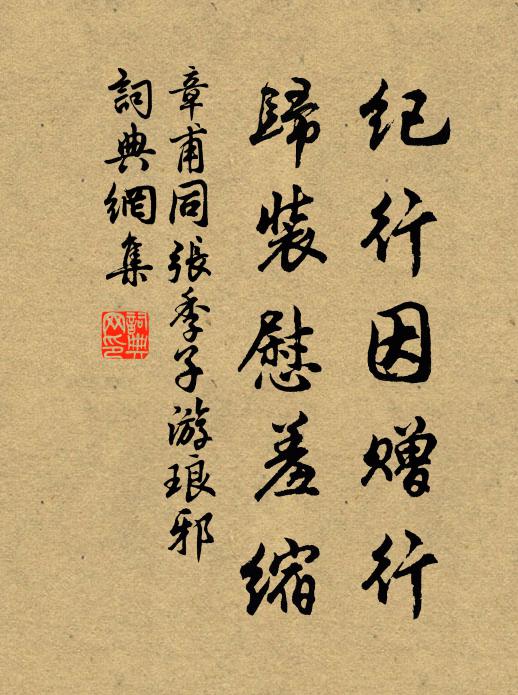 纪行因赠行
歸装慰羞缩
章甫同張季子游琅邪
詞典網集
詞典網印